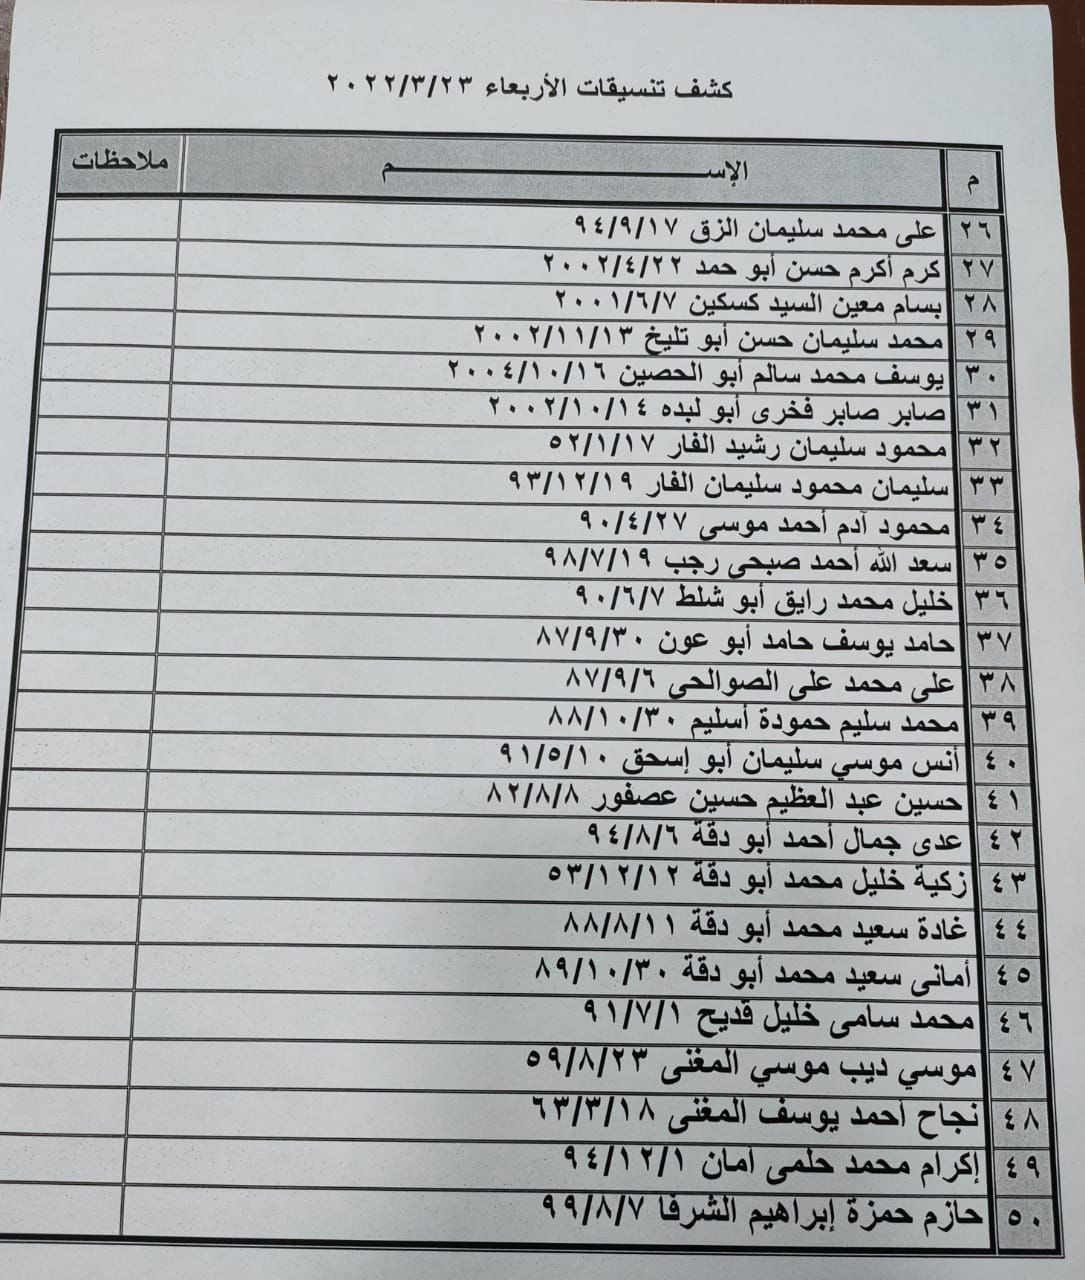 كشف تنسيقات الأربعاء ٢٠٢٢/٣/٢٣
م الإســــــــم ملاحظات
٢٦ على محمد سليمان الزق ٩٤/٩/١٧
٢٧ كرم أكرم حسن أبو حمد ٢٠٠٢/٤/٢٢
٢٨ بسام معين السيد كسكين ٢٠٠١/٦/٧
٢٩ محمد سليمان حسن أبو تليخ ٢٠٠٢/١١/١٣
٣٠ يوسف محمد سالم أبو الحصين ٢٠٠٤/١٠/١٦
٣١ صابر صابر فخرى أبو لبده ٢٠٠٢/١٠/١٤
٣٢ محمود سليمان رشيد الفار ٥٢/١/١٧
٣٣ سليمان محمود سليمان الفار ٩٣/١٢/١٩
٣٤ محمود آدم أحمد موسى ٩٠/٤/٢٧
٣٥ سعد الله أحمد صبحى رجب ٩٨/٧/١٩
٣٦ خليل محمد رايق أبو شلط ٩٠/٦/٧
٣٧ حامد يوسف حامد أبو عون ٨٧/٩/٣٠
٣٨ على محمد على الصوالحى ٨٧/٩/٦
٣٩ محمد سليم حمودة أسليم ٨٨/١٠/٣٠
٤٠ أنس موسي سليمان أبو إسحق ٩١/٥/١٠
٤١ حسين عبد العظيم حسين عصفور ٨٢/٨/٨
٤٢ عدى جمال أحمد أبو دقة ٩٤/٨/٦
٤٣ زكية خليل محمد أبو دقة ٥٣/١٢/١٢
٤٤ غادة سعيد محمد أبو دقة ٨٨/٨/١١
٤٥ أمانى سعيد محمد أبو دقة ٨٩/١٠/٣٠
٤٦ محمد سامى خليل قديح ٩١/٧/١
٤٧ موسي ديب موسي المغنى ٥٩/٨/٢٣
٤٨ نجاح أحمد يوسف المغنى ٦٣/٣/١٨
٤٩ إكرام محمد حلمى أمان ٩٤/١٢/١
٥٠ حازم حمزة إبراهيم الشرفا ٩٩/٨/٧